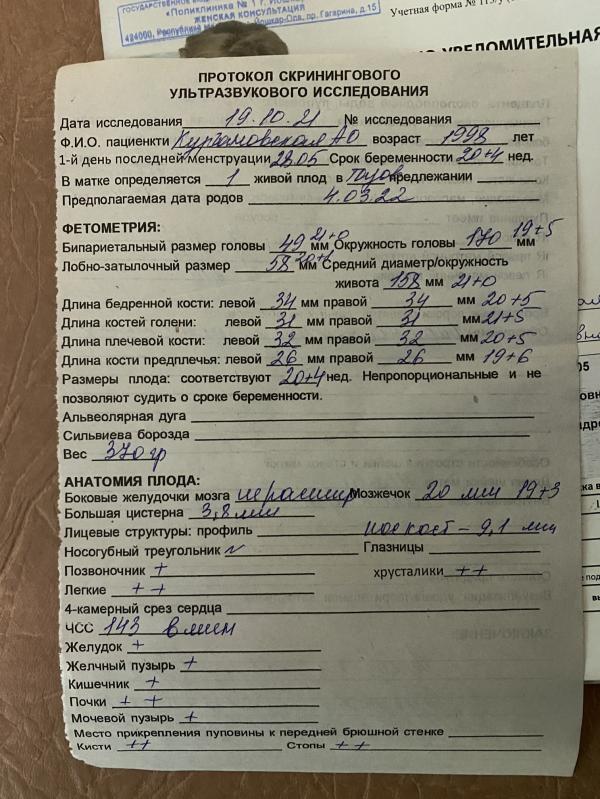 ГОСУДАРСТВЕННОЕ
«Поликлиника № 1 г. Йошкар-
ЖЕНСКАЯ КОНСУЛЬТАЦИЯ
424000, Республика Йошкар-Ола, пр. Гагарина, д.15
Учетная форма № 113/у
УВЕДОМИТЕЛЬНАЯ
ПРОТОКОЛ СКРИНИНГОВОГО
УЛЬТРАЗВУКОВОГО ИССЛЕДОВАНИЯ
Дата исследования 19.10.21 № исследования
Ф.И.О. пациенкти АО возраст 1998 лет
1-й день последней менструации 28.05 Срок беременности 20+4 нед.
В матке определяется 1 живой плод в предлежании
Предполагаемая дата родов 4.03.22
ФЕТОМЕТРИЯ:
Бипариетальный размер головы 49 мм 21+0 Окружность головы 170 мм 19+5
Лобно-затылочный размер 58 мм Средний диаметр/окружность
живота 158 мм 21+0
Длина бедренной кости: левой 34 мм правой 34 мм 20+5
Длина костей голени: левой 31 мм правой 31 мм 21+5
Длина плечевой кости: левой 32 мм правой 32 мм 20+5
Длина кости предплечья: левой 26 мм правой 26 мм 19+6
Размеры плода: соответствуют 20+4 нед. Непропорциональные и не
позволяют судить о сроке беременности.
Альвеолярная дуга
Сильвиева борозда
Вес 370 гр
АНАТОМИЯ ПЛОДА:
Боковые желудочки мозга не расшир Мозжечок 20 мм 19+3
Большая цистерна 3,8 мм
Лицевые структуры: профиль нос кост - 9,1 мм
Носогубный треугольник N Глазницы
Позвоночник + хрусталики ++
Легкие ++
4-камерный срез сердца
ЧСС 143 в мин
Желудок +
Желчный пузырь +
Кишечник +
Почки ++
Мочевой пузырь +
Место прикрепления пуповины к передней брюшной стенке
Кисти ++ Стопы ++